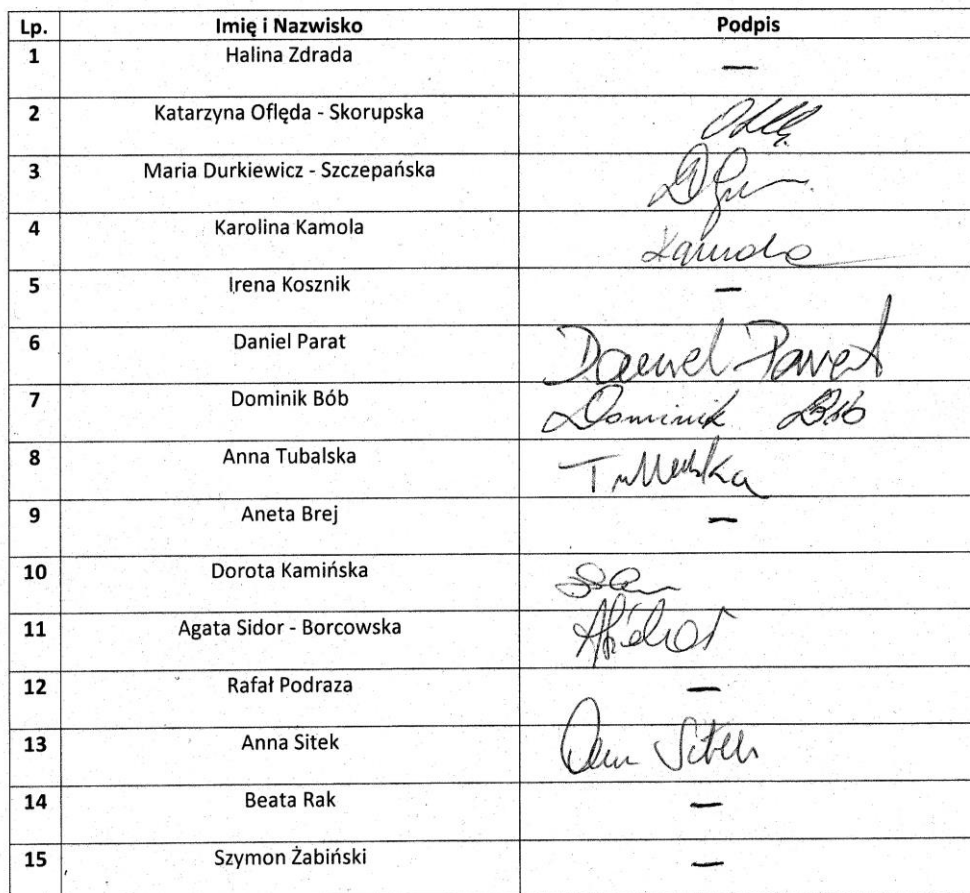 Lp. Imię i Nazwisko Podpis
1 Halina Zdrada —
2 Katarzyna Oflęda - Skorupska
3 Maria Durkiewicz - Szczepańska
4 Karolina Kamola Kamola
5 Irena Kosznik —
6 Daniel Parat Daniel Parat
7 Dominik Bób Dominik Bób
8 Anna Tubalska
9 Aneta Brej —
10 Dorota Kamińska
11 Agata Sidor - Borcowska
12 Rafał Podraza —
13 Anna Sitek Sitek
14 Beata Rak —
15 Szymon Żabiński —